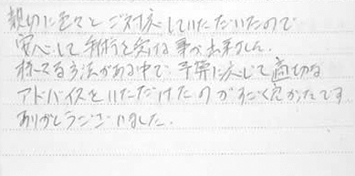 親切に色々とご対応していただいたので
安心して手術を受ける事が出来ました。
様々な方法がある中で、予算に応じて適切な
アドバイスをいただけたのがすごく良かったです
ありがとうございました。